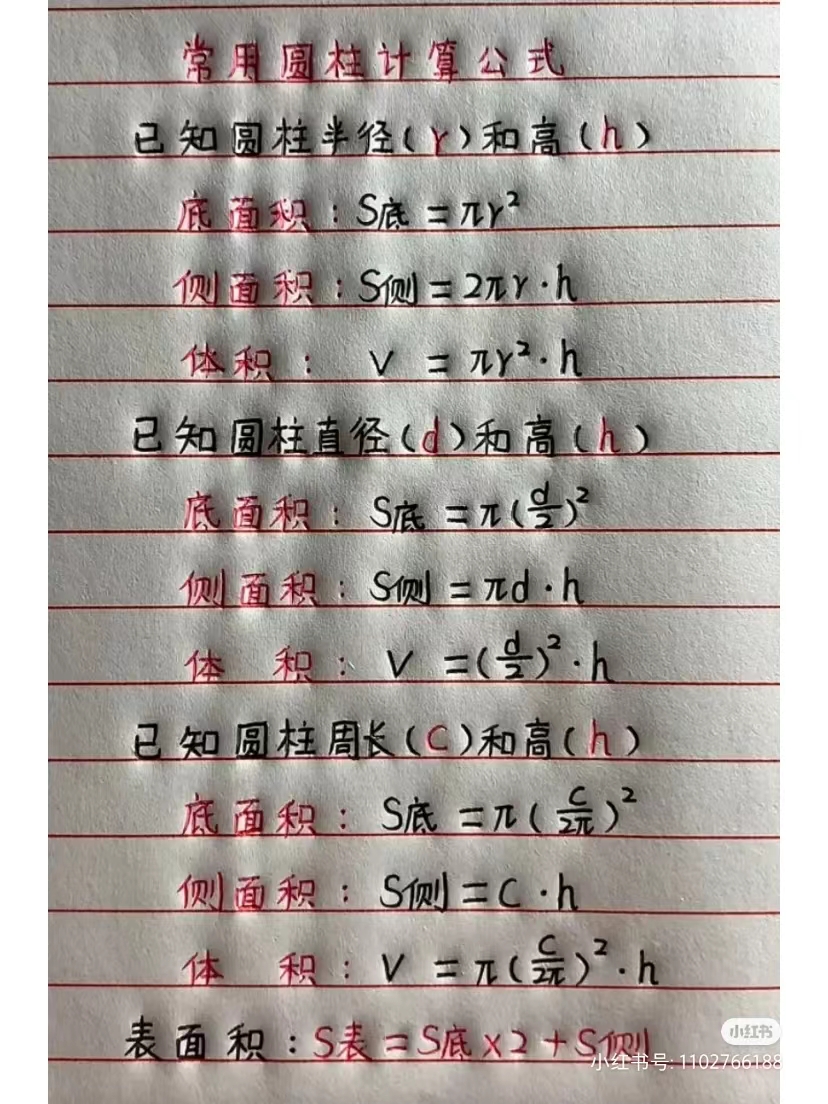 常用圆柱计算公式
已知圆柱半径(r)和高(h)
底面积:S底=πr²
侧面积:S侧=2πr·h
体积: V =πr²·h
已知圆柱直径(d)和高(h)
底面积: S底=π(d/2)²
侧面积: S侧=πd·h
体 积: V =(d/2)²·h
已知圆柱周长(C)和高(h)
底面积: S底=π(C/2π)²
侧面积: S侧=C·h
体 积: V =π(C/2π)²·h
表面积:S表=S底×2+S侧
小红书
小红书号:1102766188